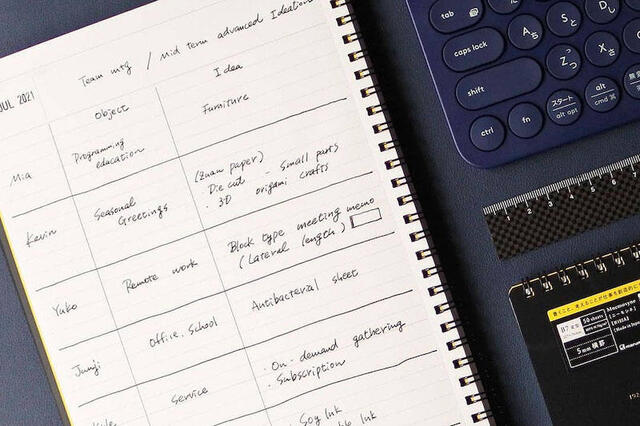 JUL 2021
Team mtg / Mid term advanced Ideation
Object
Idea
Mia
Programming
education
Furniture
Kevin
Seasonal
Greetings
(Zuan paper)
Die cut - Small parts
・3D origami crafts
Yuko
Remote work
Block type meeting memo
(Lateral length)
Junji
Office, School
Antibacterial sheet
Service
・On-demand gathering
・Subscription
Soy Ink
Ink
tab
caps lock
shift
ctrl
fn
スタート
alt opt
alt
cmd ⌘
あ
ち
と
S
し
D
つ
Z
さ
X
1 2 3 4 5 6 7
書くこと、考えることが仕事を創造的に
B7
50 sheets
5mm 横罫
Mnemosyne
[ニーモシネ]
maruman
192